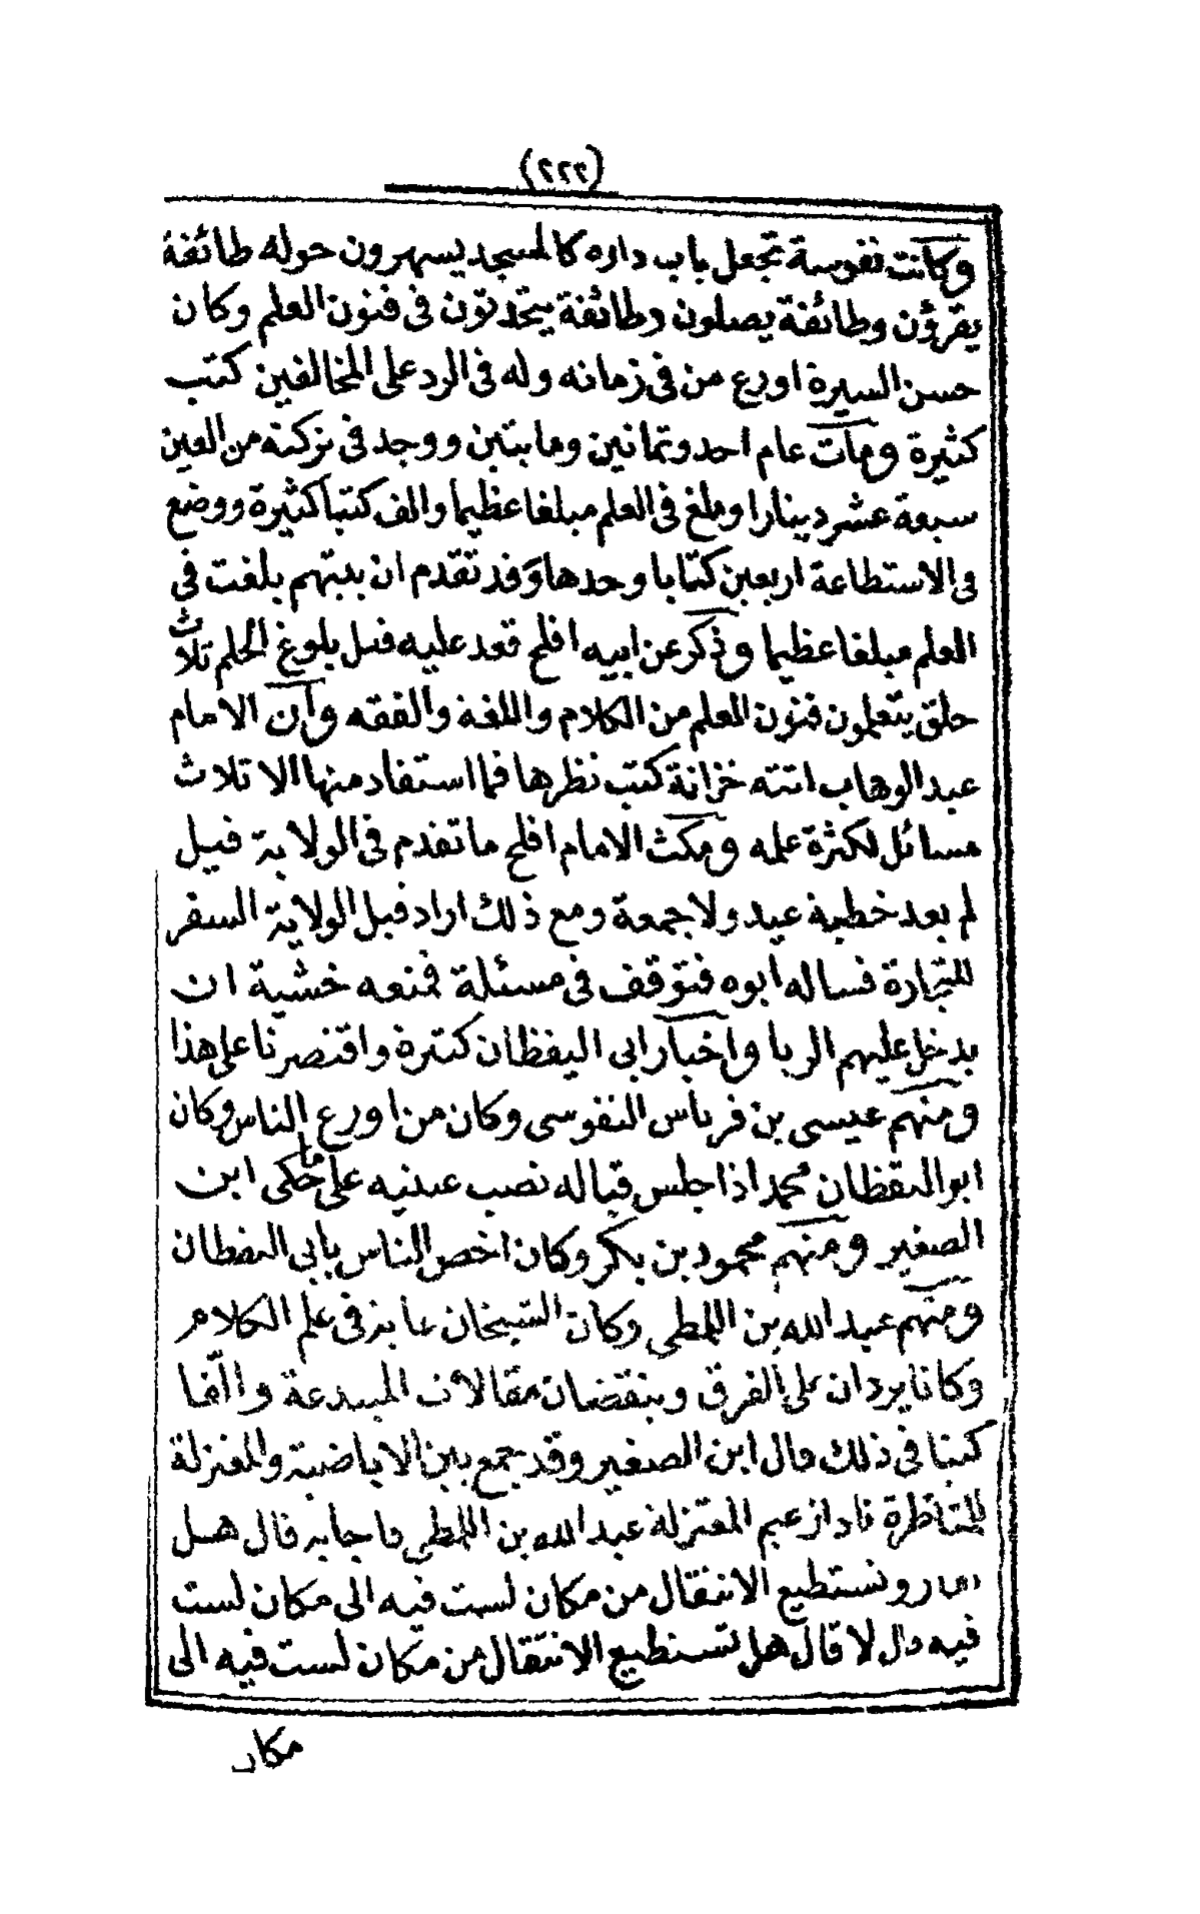 (٢٢٢)
وكانت نفوسة تجعل باب داره كالمسجد يسهرون حوله طائفة
يقرؤن وطائفة يصلون وطائفة يتحدثون في فنون العلم وكان
حسن السيرة اورع من في زمانه وله في الرد على المخالفين كتب
كثيرة ومات عام احد وثمانين ومايتين ووجد في تركته من العين
سبعة عشر دينارا وبلغ في العلم مبلغا عظيما والف كتبا كثيرة ووضع
في الاستطاعة اربعين كتابا وحدها وقد تقدم ان بيتهم بلغت في
العلم مبلغا عظيما وذكر عن ابيه افلح قعد عليه قبل بلوغ الحلم ثلاث
حلق يتعلمون فنون العلم من الكلام واللغة والفقه وان الامام
عبد الوهاب اتته خزانة كتب نظرها فما استفاد منها الا ثلاث
مسائل لكثرة علمه ومكث الامام افلح ما تقدم في الولاية قيل
لم يعد خطبة عيد ولا جمعة ومع ذلك اراد قبل الولاية السفر
للتجارة فساله ابوه فتوقف في مسئلة فمنعه خشية ان
يدخل عليهم الربا واخبار ابى اليقظان كثيرة واقتصرنا على هذا
ومنهم عيسى بن فرناس النفوسى وكان من اورع الناس وكان
ابو اليقظان محمد اذا جلس قباله نصب عينيه على ما حكى ابن
الصغير ومنهم محمود بن بكر وكان اخص الناس بابى اليقظان
ومنهم عبد الله بن اللمطي وكان الشيخان غاية في علم الكلام
وكانا يردان على الفرق وينقضان مقالات المبتدعة والّفا
كتبا في ذلك قال ابن الصغير وقد جمع بين الاباضية والمعتزلة
للمناظرة نادا زعيم المعتزلة عبد الله بن اللمطي فاجابه قال هل
تستطيع الانتقال من مكان لست فيه الى مكان لست
فيه قال لا قال هل تستطيع الانتقال من مكان لست فيه الى
مكان